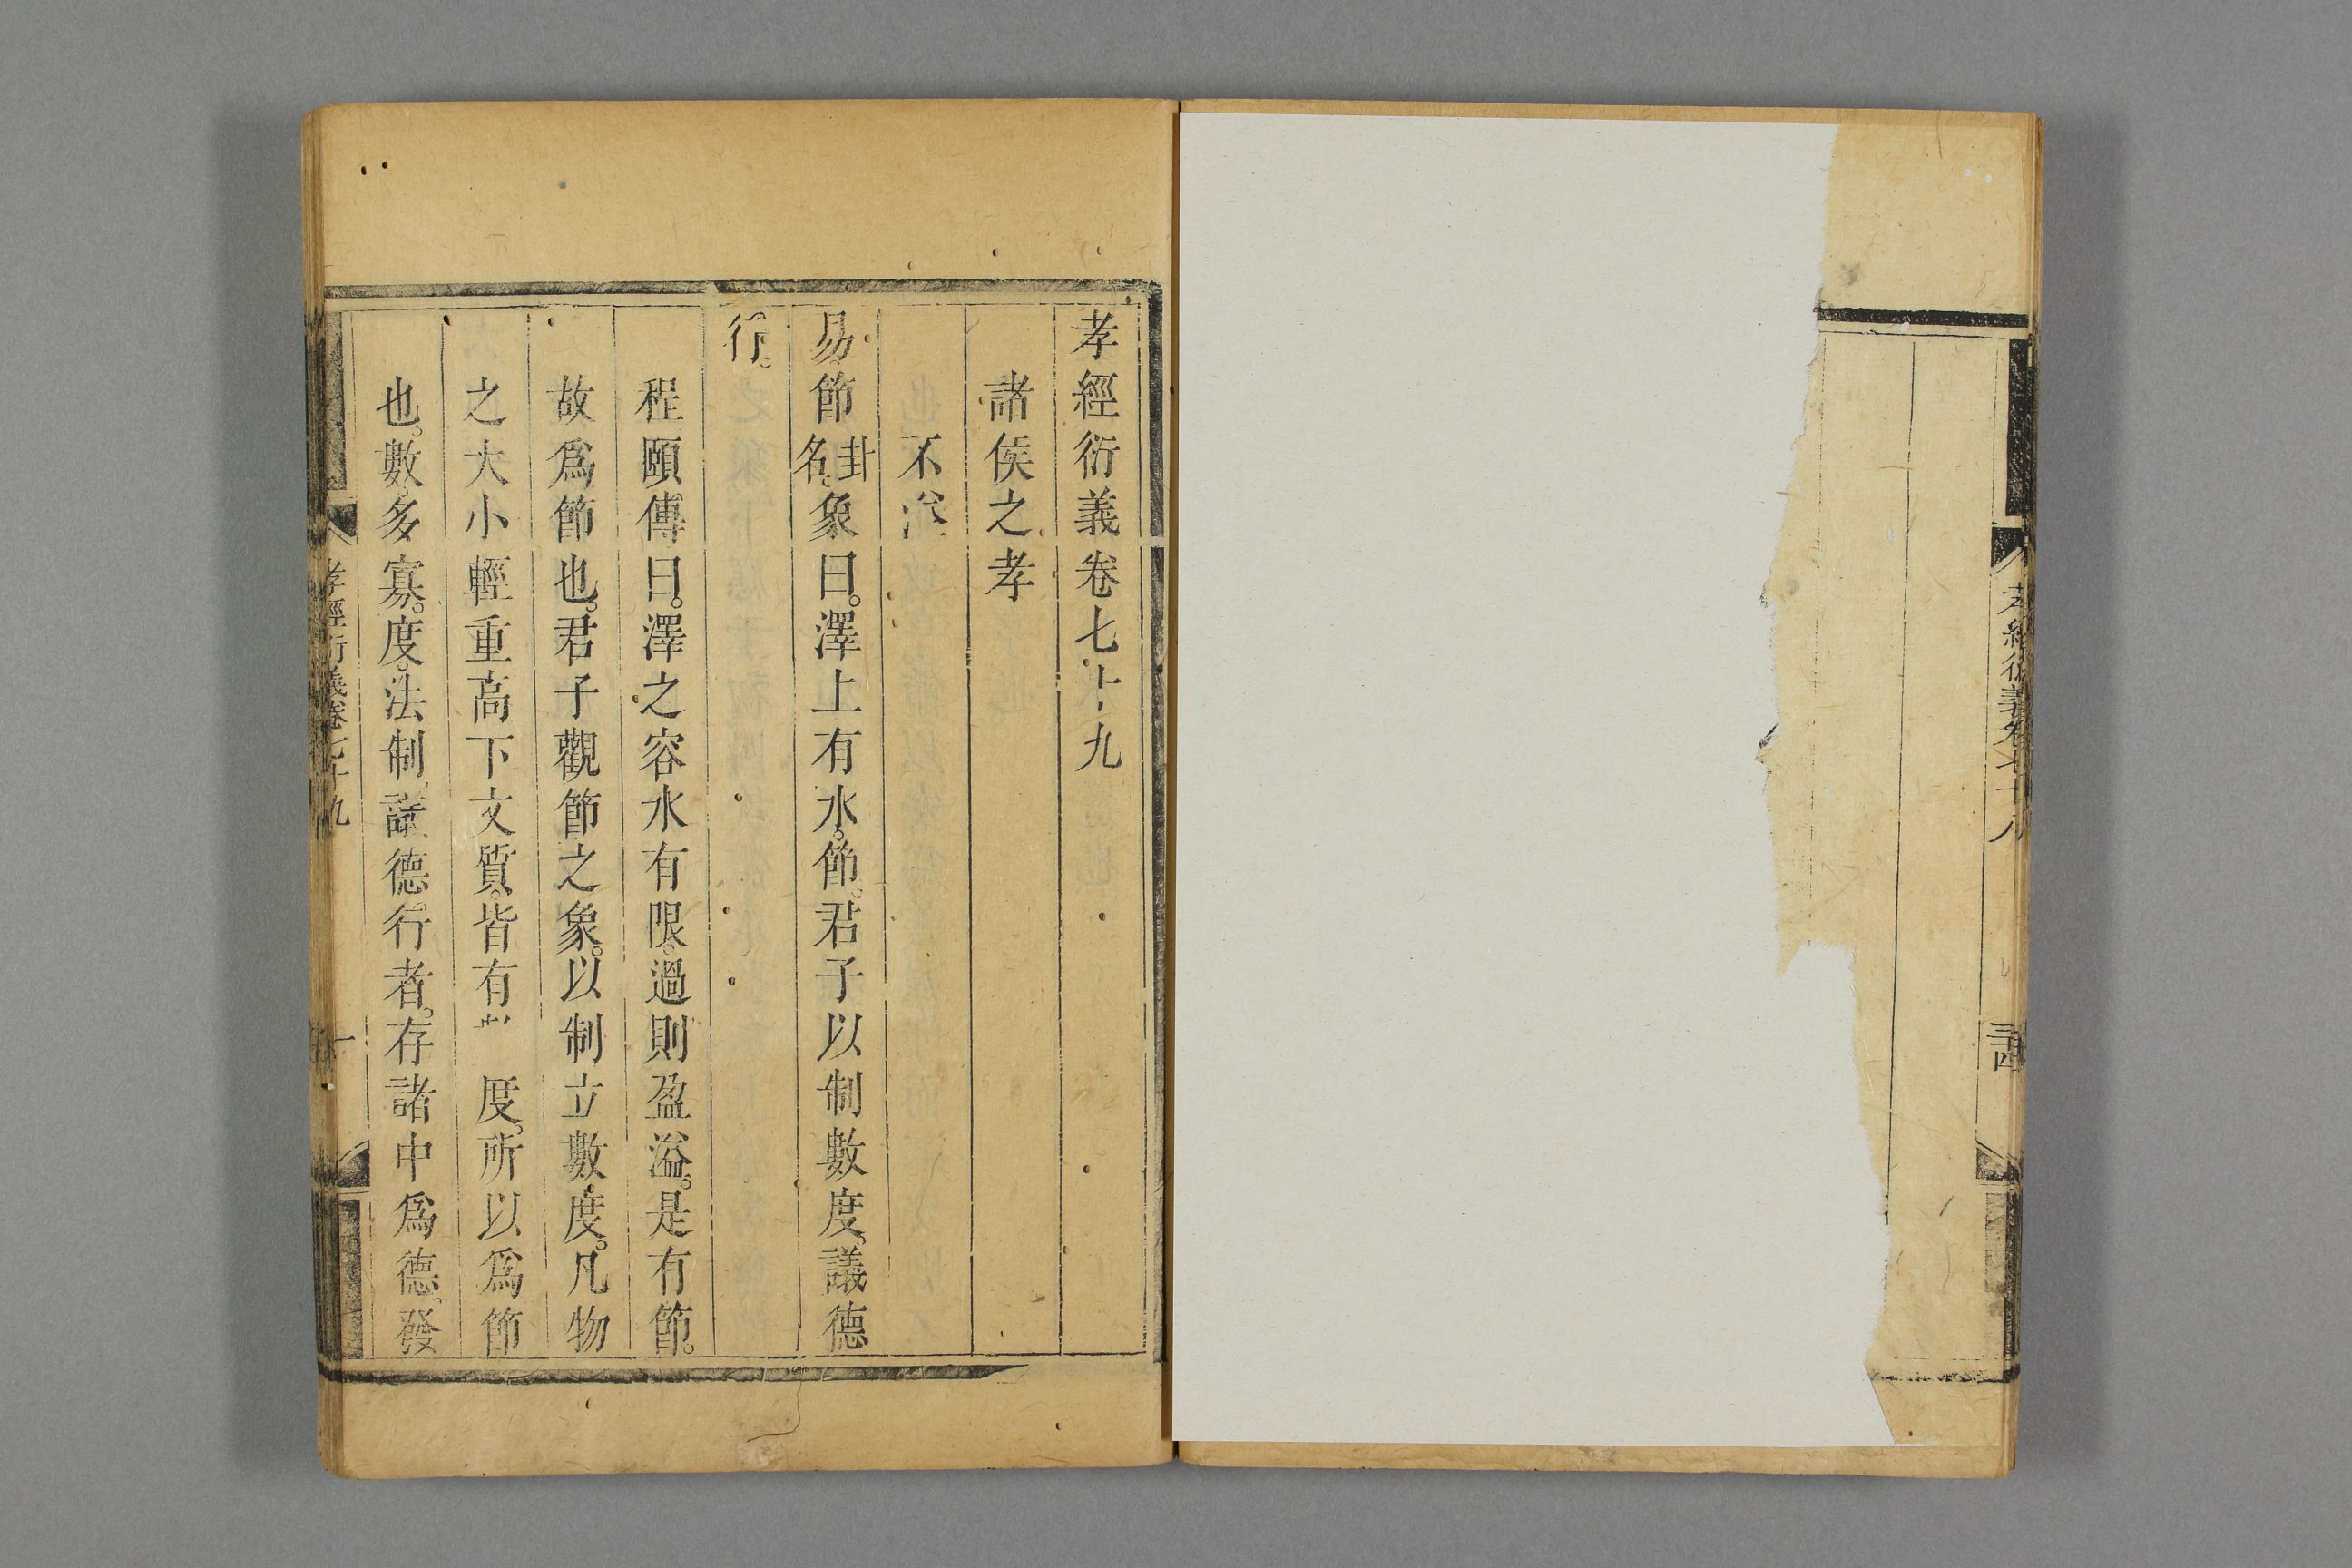 孝經衍義卷七十八
三十四
孝經衍義卷七十九
諸侯之孝
不溢
易節卦名象曰。澤上有水。節。君子以制數度。議德
行。
程頤傳曰。澤之容水有限。過則盈溢。是有節。
故爲節也。君子觀節之象。以制立數度。凡物
之大小輕重高下文質。皆有度。所以爲節
也。數。多寡。度。法制。議德。行者。存諸中爲德。發
孝經衍義卷七十九
一